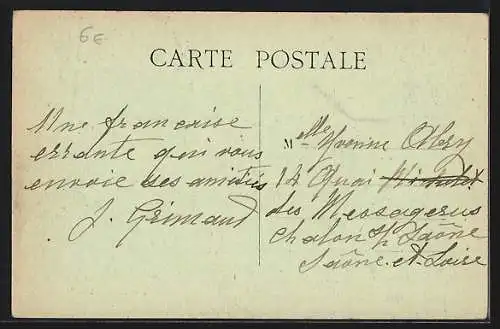 6€
CARTE POSTALE
Une française
errante qui vous
envoie ses amitiés
J. Grimaud
Melle Yvonne
14 Quai
des Messageries
Chalon s/ Saône
Saône-et-Loire